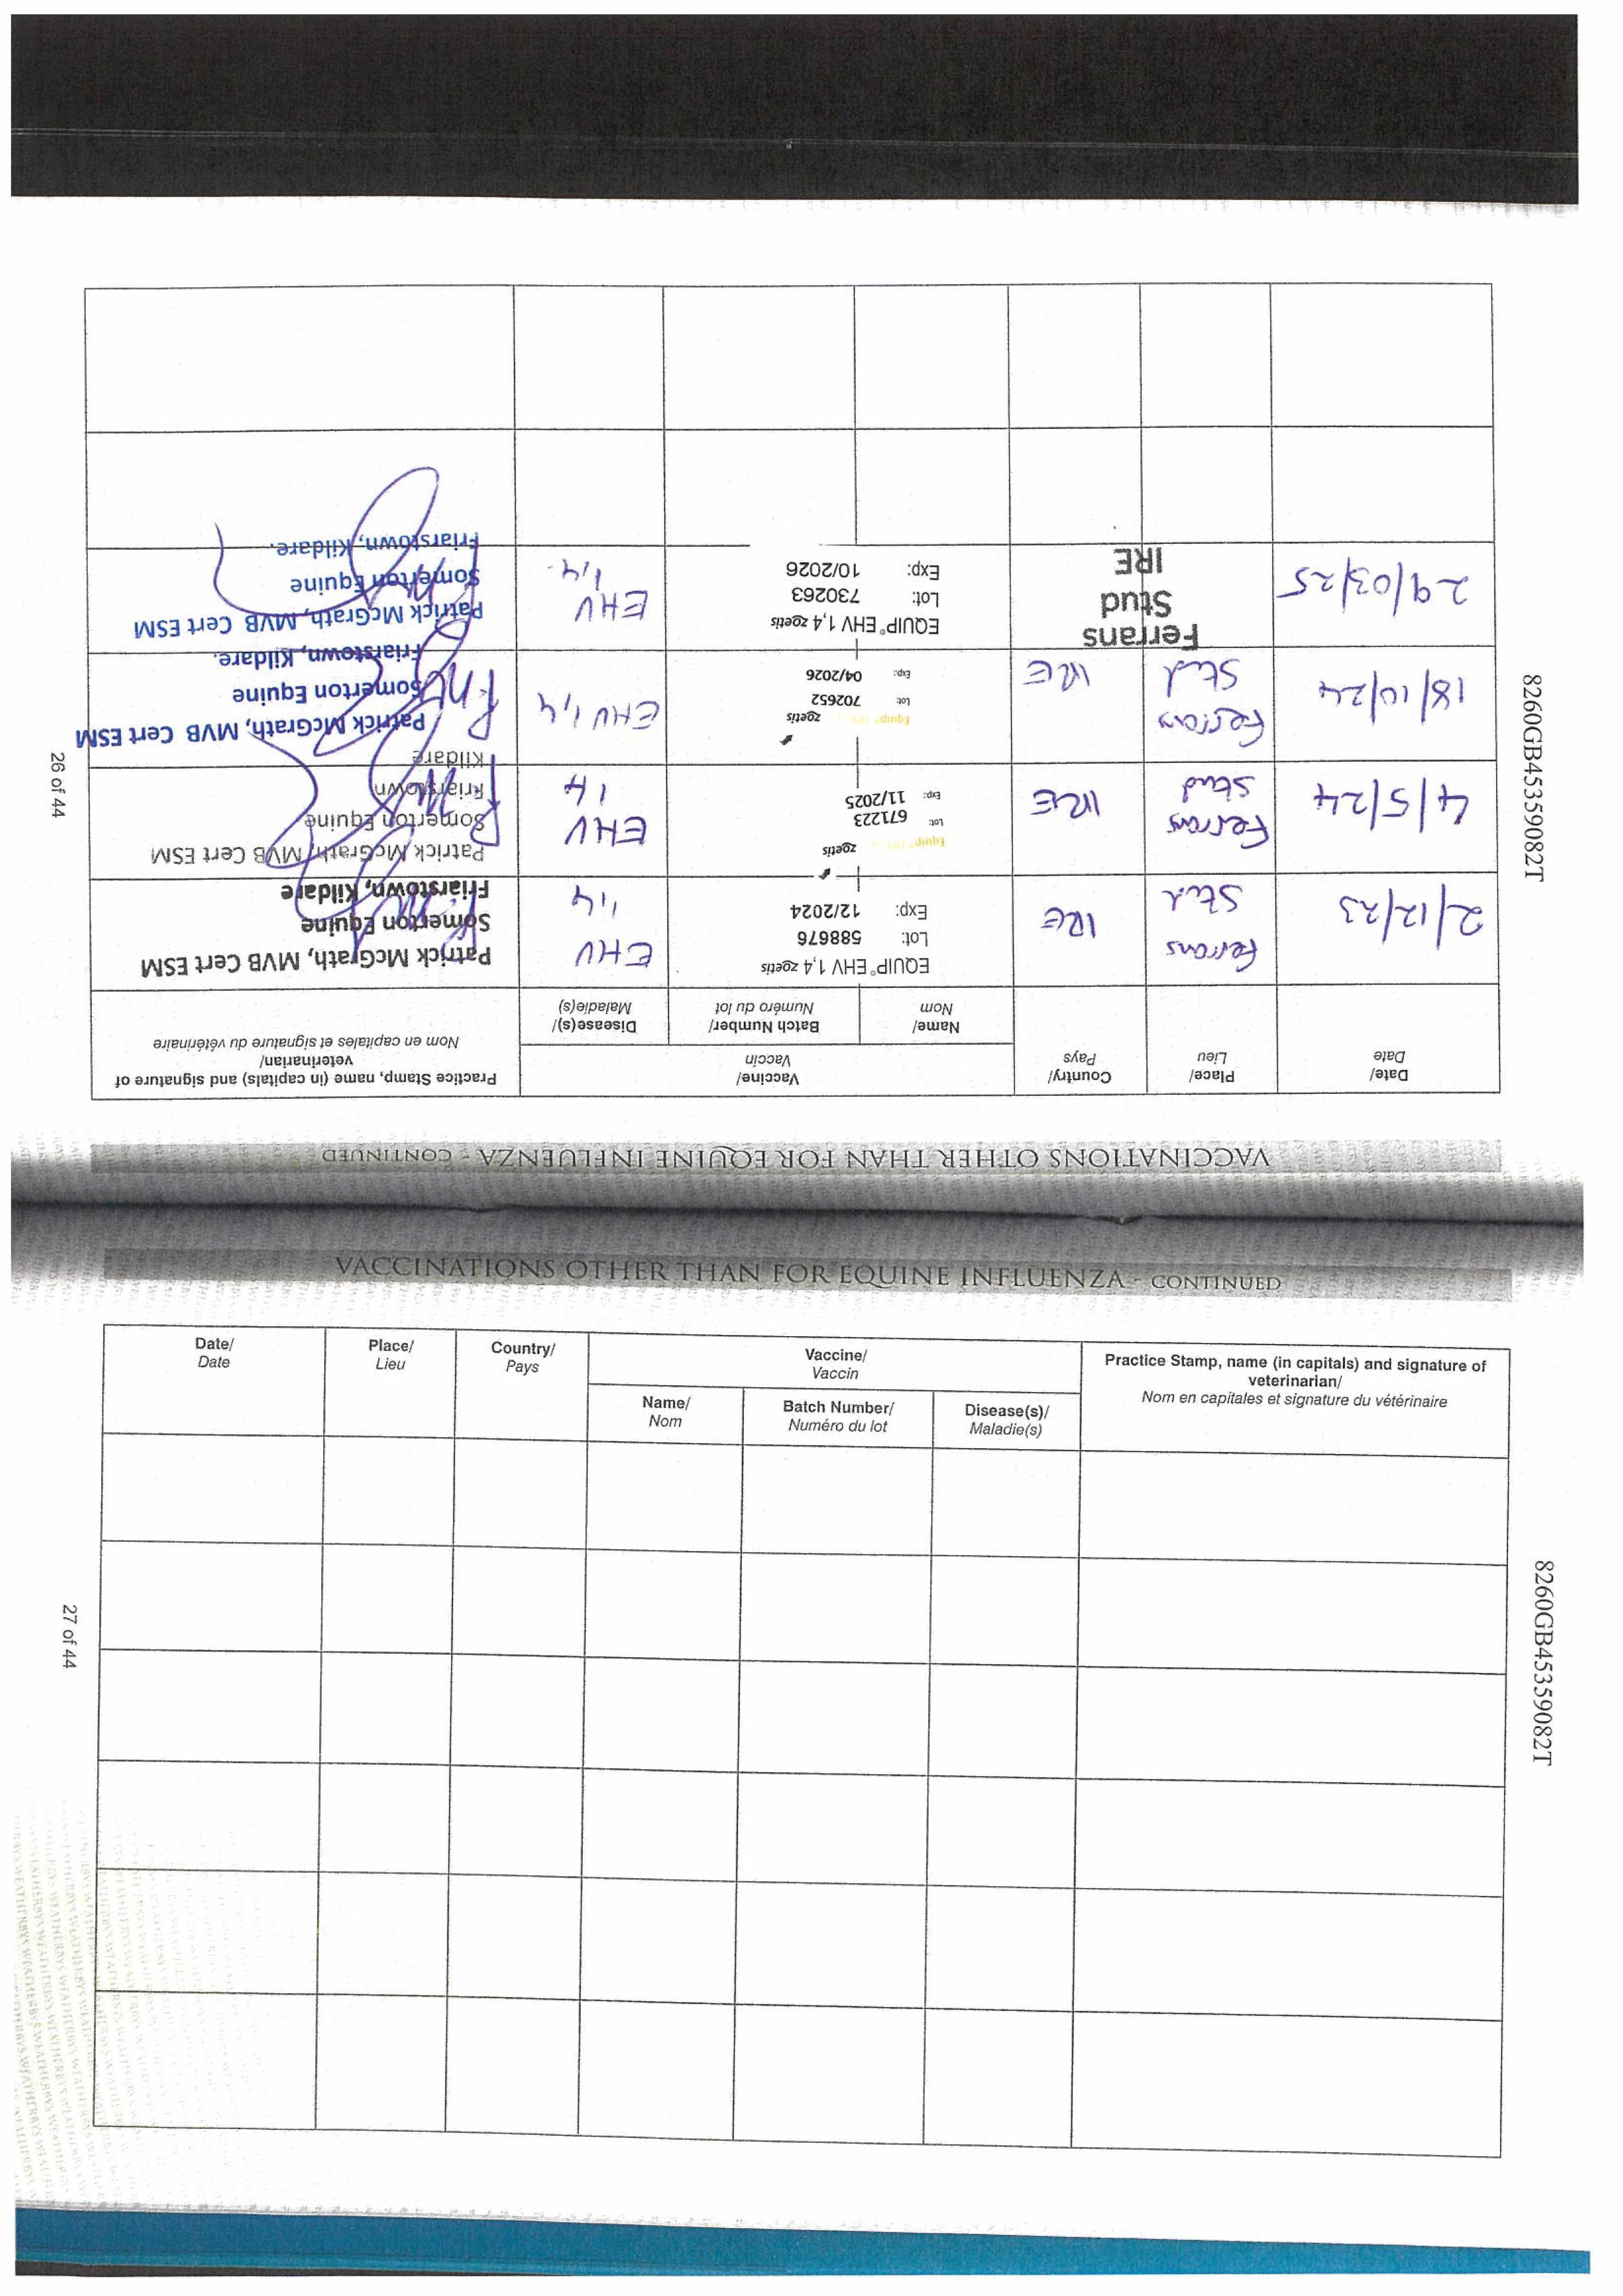 8260GB45359082T
26 of 44
VACCINATIONS OTHER THAN FOR EQUINE INFLUENZA - CONTINUED
Date/
Date
Place/
Lieu
Country/
Pays
Vaccine/
Vaccin
Name/
Nom
Batch Number/
Numéro du lot
Disease(s)/
Maladie(s)
Practice Stamp, name (in capitals) and signature of
veterinarian/
Nom en capitales et signature du vétérinaire
2/12/23
Ferrans
Stud
IRE
EQUIP® EHV 1,4 zoetis
Lot: 588676
Exp: 12/2024
EHV
1,4
Patrick McGrath, MVB Cert ESM
Somerton Equine
Friarstown, Kildare
4/5/24
Ferrans
Stud
IRE
Equip®
zoetis
Lot: 671223
Exp: 11/2025
EHV
1,4
Patrick McGrath, MVB Cert ESM
Somerton Equine
Friarstown
Kildare
18/10/24
Ferrans
Stud
IRE
Equip®
zoetis
Lot: 702652
Exp: 04/2026
EHV 1,4
Patrick McGrath, MVB Cert ESM
Somerton Equine
Friarstown, Kildare.
29/03/25
Ferrans
Stud
IRE
EQUIP® EHV 1,4 zoetis
Lot: 730263
Exp: 10/2026
EHV
1,4
Patrick McGrath, MVB Cert ESM
Somerton Equine
Friarstown, Kildare.
VACCINATIONS OTHER THAN FOR EQUINE INFLUENZA - CONTINUED
Date/
Date
Place/
Lieu
Country/
Pays
Vaccine/
Vaccin
Name/
Nom
Batch Number/
Numéro du lot
Disease(s)/
Maladie(s)
Practice Stamp, name (in capitals) and signature of
veterinarian/
Nom en capitales et signature du vétérinaire
27 of 44
8260GB45359082T